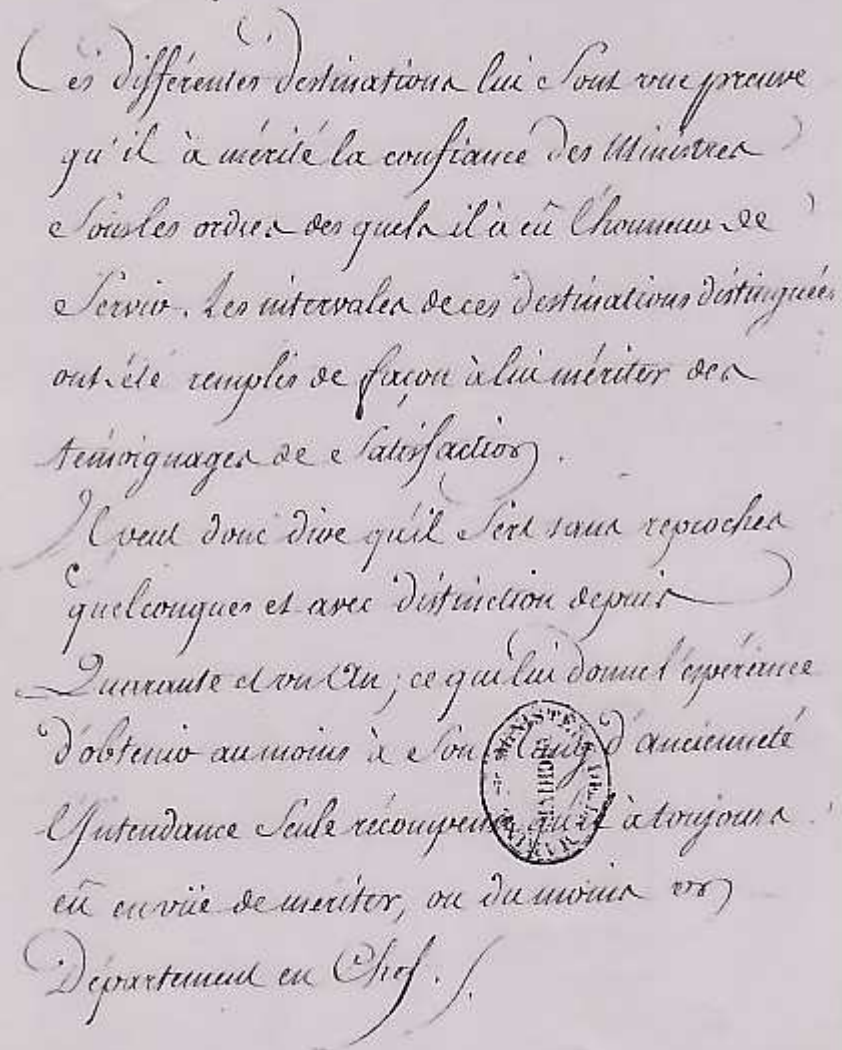 Ces différentes destinations lui sont une preuve
qu'il à mérité la confiance des Ministres
sous les ordres des quels il à eû l'honneur de
servir. Les intervales de ces destinations distinguées
ont été remplis de façon à lui mériter des
témoignages de satisfaction.
Il veut donc dire qu'il sert sans reproches
quelconques et avec distinction depuis
Quarante et un An; ce qui lui donne l'espérance
d'obtenir au moins à son rang d'ancienneté
l'Intendance seule récompense qu'il à toujours
eû en vüe de meriter, ou du moins un
Département en Chef./.
MINISTÈRE DE LA MARINE
ARCHIVES